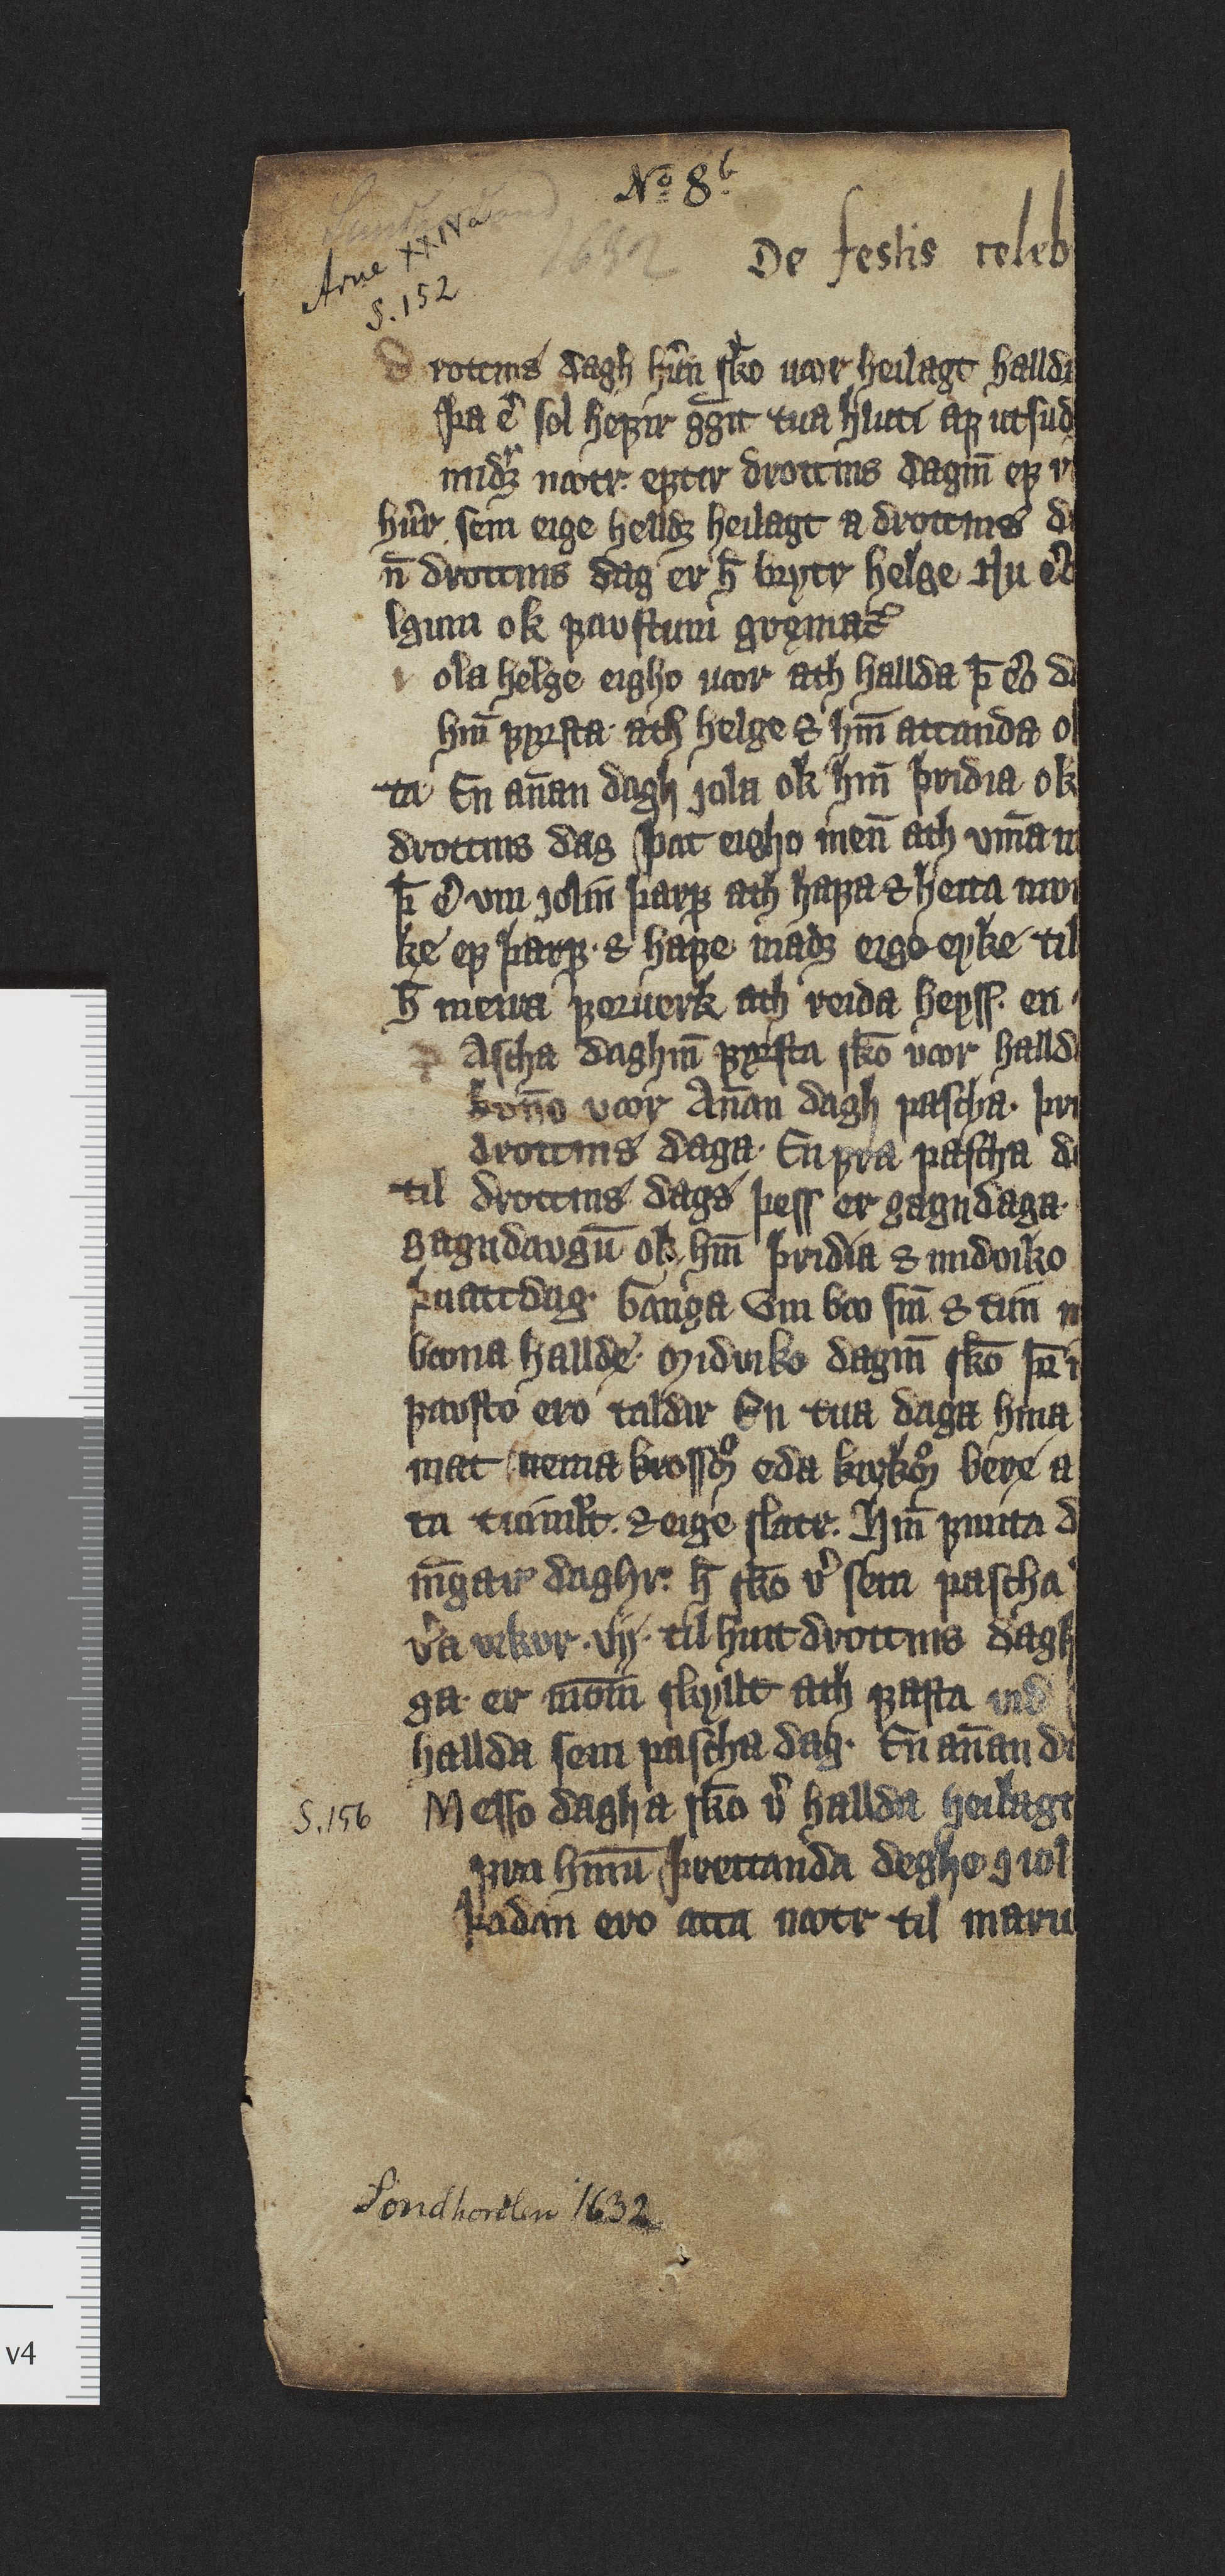 No 8b
Sundhordland
1632
Arne XXIV a
S. 152
De festis celeb
Drottins dagh hu̅n sko uær heilagt halldi
þa e͛ sol hefir ggit tua hluti af utsud
midꝫ nætr. eptir drottins dagin̅ ef
hu̅r sem eige helldꝫ heilagt a drottins d
n̅ drottins dag er h̅ brytr helge Nu e͛
lgum ok fæstum gręmat͛
ola helge eigho uær ath hallda þ̅ e͛o d
hin̅ fyrsta ath helge & hin̅ attanda ok
ta En an̅an dagh jola ok hin̅ þridia ok
drottins dag þat eigho men̅ ath vin̅a
þ̅ e͛ um jolin̅ þarf ath hafa & heita
ke ef þarf. & hafe madꝫ eige eyke til
h̅ meira foruerk ath reida heyſſ. en
Ascha daghin̅ fyrsta sko̅ vær halld
bon̅o vær An̅an dagh pascha. þri
drottins daga. En fra pascha d
til drottins dags þess er gagndaga.
gagndaugu̅ ok hin̅ þridia & miduiko
þuattdag. Ganga Um bæ sin̅ & tun
bæna hallde. Miduiko dagin̅ sko̅ þr̅
fæsto ero taldir En tua daga hina
mat nema krossꝫ eda kirkꝫ bere a
ta tiimlt̅. & eige slatr. Hin̅ fimta d
in̅gar daghr. h̅ sko̅ v͛ sem pascha
v͛a vikvr .vij. til huit drottins dagh
ga. er mo̅m skyllt ath fasta vid
hallda sem pascha dag. En an̅an d
S. 156
Messo dagha sko̅ v͛ hallda heilagt
fra hinu̅ þrettanda deghe j iol
Þadan ero atta nætr til mariu
Söndhorelen 1632
v4